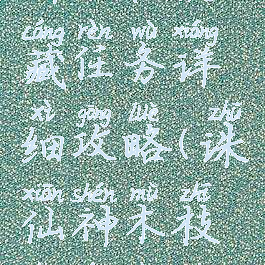 cáng rèn wù xiáng
藏任务详
xì gōng lüè zhū
细攻略(诛
xiān shén mù zhī
仙神木枝